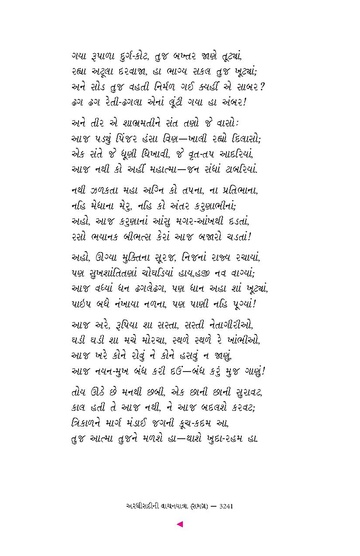 ગયા રૂપાળા દુર્ગ-કોટ, તુજ બખ્તર જાણે તૂટ્યાં,
રહ્યા અટૂલા દરવાજા, હા ભાગ્ય સકલ તુજ ખૂટ્યાં;
અને સોડ તુજ વહતી નિર્મળ ગઈ ક્યહીં એ સાબર ?
ઢગ ઢગ રેતી-ઢગલા એનાં લૂંટી ગયા હા અંબર!
અને તીર એ શાભ્રમતીને સંત તણો જે વાસોઃ
આજ પડ્યું પિંજર હંસા વિણ—ખાલી રહ્યો દિલાસો;
એક સંતે જે ધૂણી ધિખાવી, જે વૃત-તપ આદરિયાં,
આજ નથી કો અહીં મહાત્મા—જન સંધાં ટાબરિયાં.
નથી ઝળકતા મહા અગ્નિ કો તપના, ના પ્રતિભાના,
નહિ મેધાના મેરુ, નહિ કો અંતર કરુણાભીનાં;
અહો, આજ કરુણાનાં આંસુ મગર-આંખથી દડતાં,
રસો ભયાનક બીભત્સ કેરાં આજ બજારો ચડતાં!
અહો, ઊગ્યા મુક્તિના સૂરજ, નિજનાં રાજ્ય રચાયાં,
પણ સુખશાંતિતણાં ચોઘડિયાં હાય,હજી નવ વાગ્યાં;
આજ વધ્યાં ધન ઢગલેઢગ, પણ ધાન અહા શાં ખૂટ્યાં,
પાઇપ બધે નંખાયા નળના, પણ પાણી નહિ પૂગ્યાં!
આજ અરે, રૂપિયા શા સસ્તા, સસ્તી નેતાગીરીઓ,
ઘડી ઘડી શા મચે મોરચા, સ્થળે સ્થળે રે ખાંભીઓ,
આજ ખરે કોને રોવું ને કોને હસવું ન જાણું,
આજ નયન-મુખ બંધ કરી દઉં—બંધ કરું મુજ ગાણું!
તોય ઊઠે છે મનથી છબી, એક છાની છાની સુરાવટ,
કાલ હતી તે આજ નથી, ને આજ બદલશે કરવટ;
ત્રિકાળને માર્ગ મંડાઈ જગની કૂચ-કદમ આ,
તુજ આત્મા તુજને મળશે હા—થાશે ખુદા-રહમ હા.
અરધીસદીની વાચનયાત્રા (સમગ્ર) — 3241